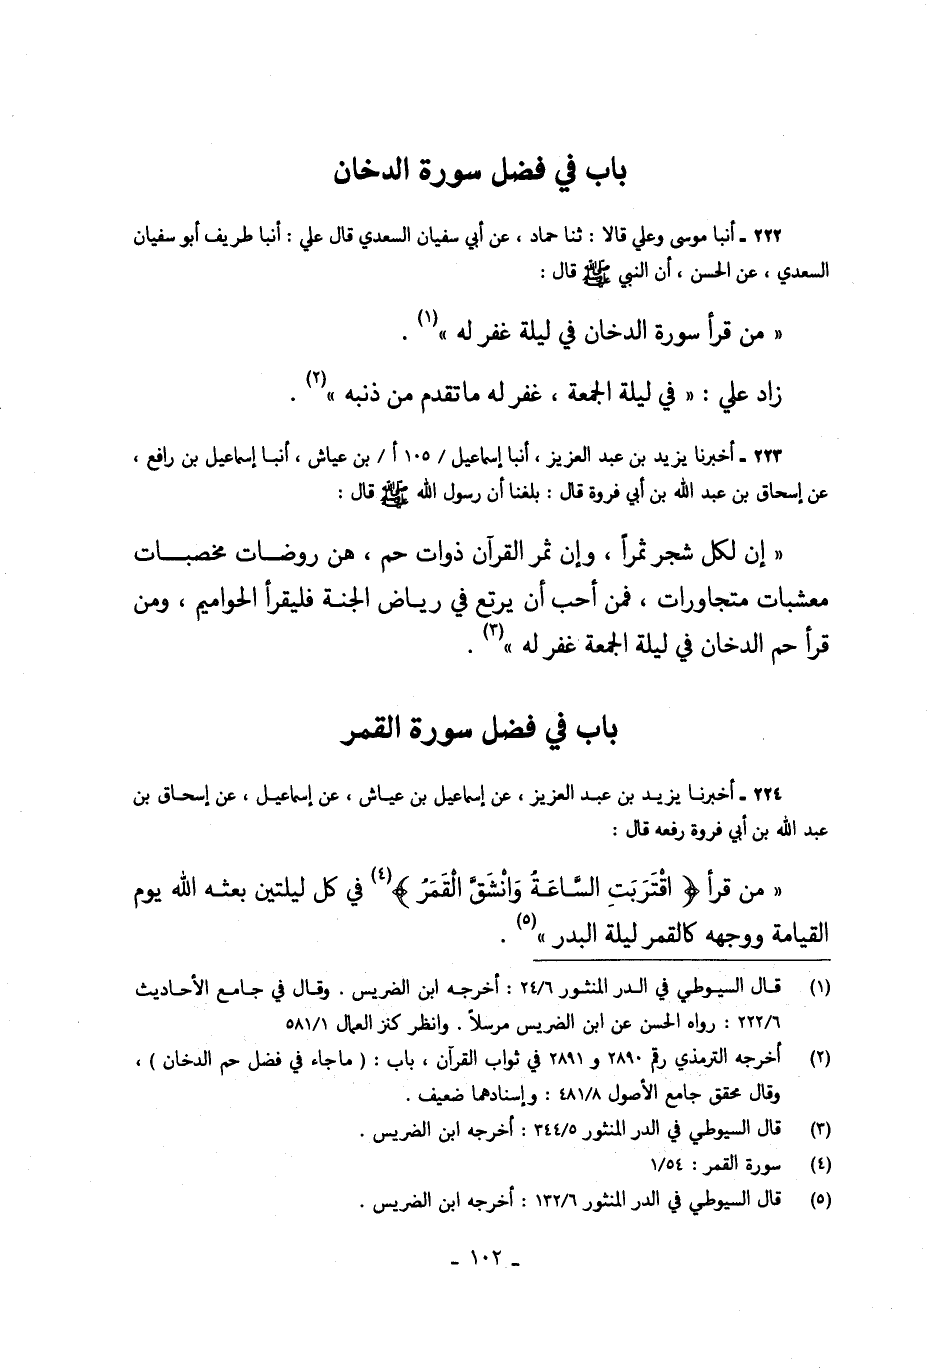 باب في فضل سورة الدخان
٢٢٢ ـ أنبا موسى وعلي قالا : ثنا حماد ، عن أبي سفيان السعدي قال علي : أنبا طريف أبو سفيان
السعدي ، عن الحسن ، أن النبي ﷺ قال :
« من قرأ سورة الدخان في ليلة غفر له »(١) .
زاد علي : « في ليلة الجمعة ، غفر له ماتقدم من ذنبه »(٢) .
٢٢٣ ـ أخبرنا يزيد بن عبد العزيز ، أنبا إسماعيل / ١٠٥ أ / بن عياش ، أنبا إسماعيل بن رافع ،
عن إسحاق بن عبد الله بن أبي فروة قال : بلغنا أن رسول الله ﷺ قال :
« إن لكل شجر ثمراً ، وإن ثمر القرآن ذوات حم ، هن روضات مخصبات
معشبات متجاورات ، فمن أحب أن يرتع في رياض الجنة فليقرأ الحواميم ، ومن
قرأ حم الدخان في ليلة الجمعة غفر له »(٣) .
باب في فضل سورة القمر
٢٢٤ ـ أخبرنا يزيد بن عبد العزيز ، عن إسماعيل بن عياش ، عن إسماعيل ، عن إسحاق بن
عبد الله بن أبي فروة رفعه قال :
« من قرأ ﴿ اقْتَرَبَتِ السَّاعَةُ وَانْشَقَّ الْقَمَرُ ﴾(٤) في كل ليلتين بعثه الله يوم
القيامة ووجهه كالقمر ليلة البدر »(٥) .
(١) قال السيوطي في الدر المنثور ٢٤/٦ : أخرجه ابن الضريس . وقال في جامع الأحاديث
٢٢٢/٦ : رواه الحسن عن ابن الضريس مرسلاً . وانظر كنز العمال ٥٨١/١
(٢) أخرجه الترمذي رقم ٢٨٩٠ و ٢٨٩١ في ثواب القرآن ، باب : ( ماجاء في فضل حم الدخان ) ،
وقال محقق جامع الأصول ٤٨١/٨ : وإسنادهما ضعيف .
(٣) قال السيوطي في الدر المنثور ٣٤٤/٥ : أخرجه ابن الضريس .
(٤) سورة القمر : ١/٥٤
(٥) قال السيوطي في الدر المنثور ١٣٢/٦ : أخرجه ابن الضريس .
ـ ١٠٢ ـ